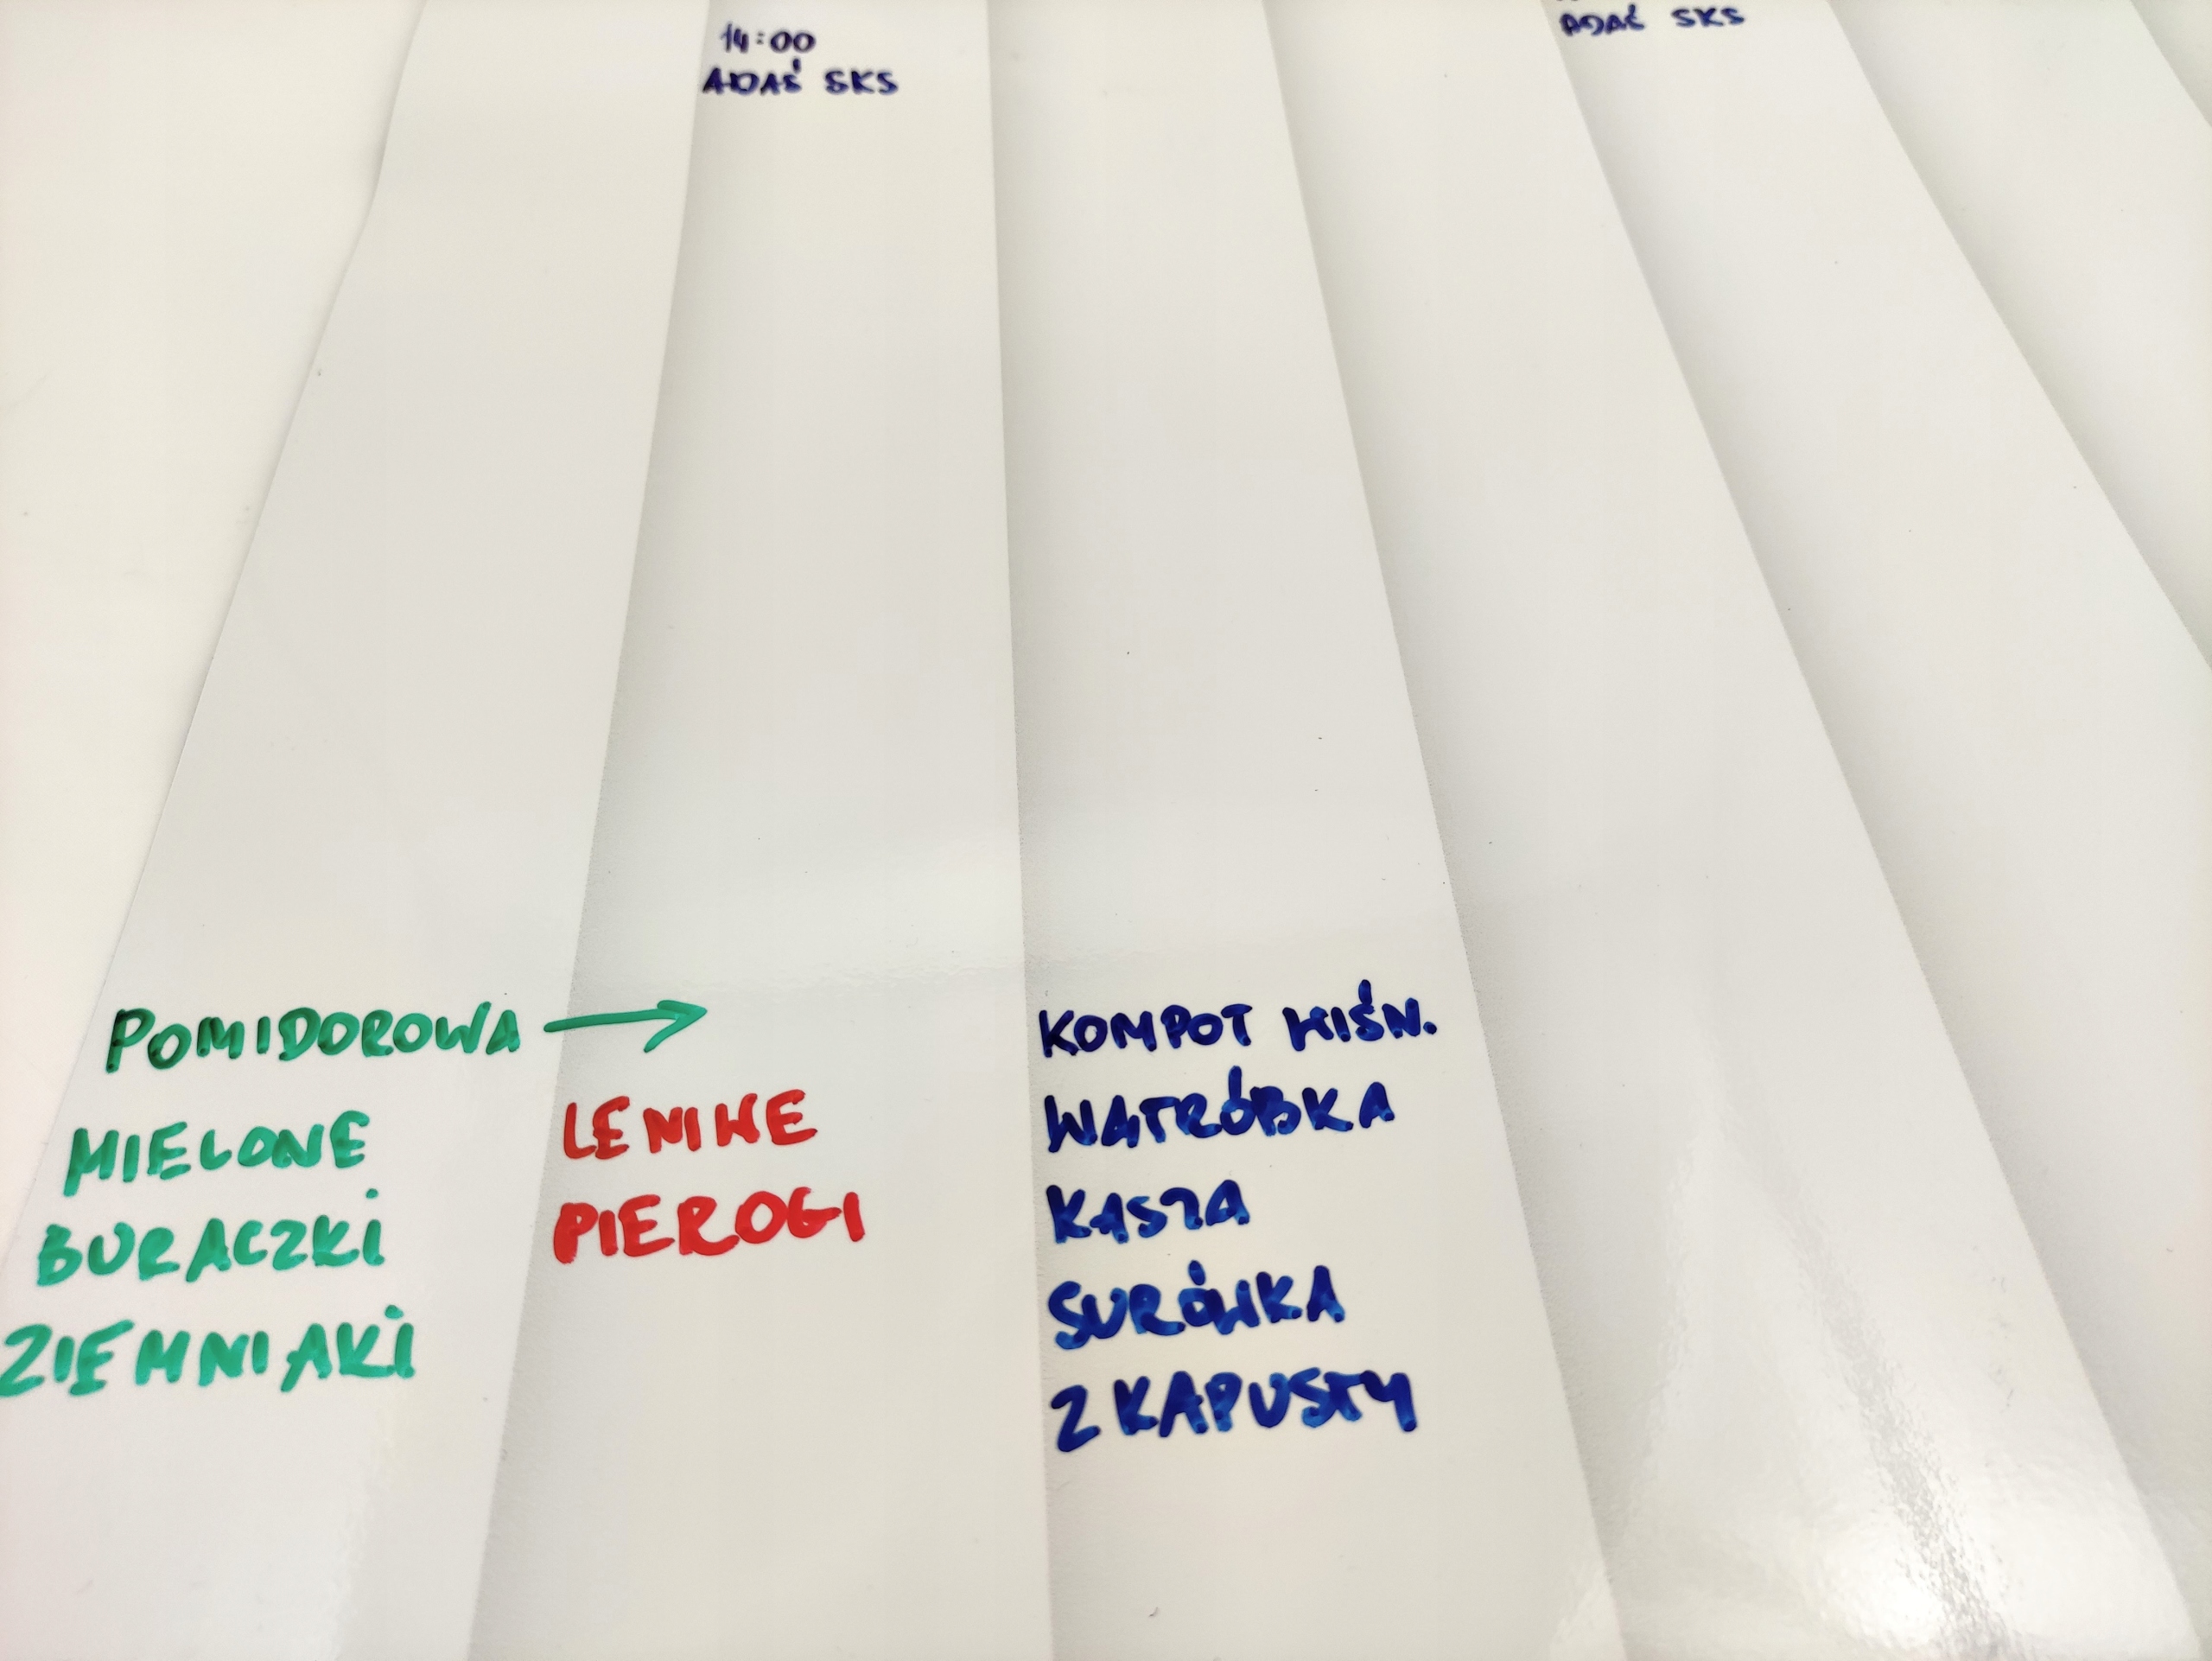 14:00
ADAŚ SKS
ADAŚ SKS
POMIDOROWA →
MIELONE
BURACZKI
ZIEMNIAKI
LENIWE
PIEROGI
KOMPOT WIŚN.
WĄTRÓBKA
KASZA
SURÓWKA
Z KAPUSTY